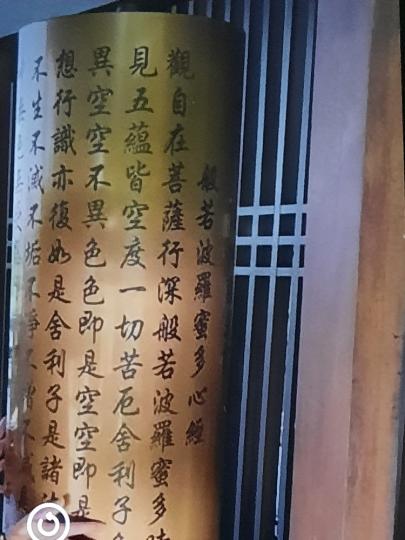 般若波羅蜜多心經
觀自在菩薩行深般若波羅蜜多時
見五蘊皆空度一切苦厄舍利子
異空空不異色色即是空空即是
想行識亦復如是舍利子是諸法
不生不滅不垢不淨不增不減